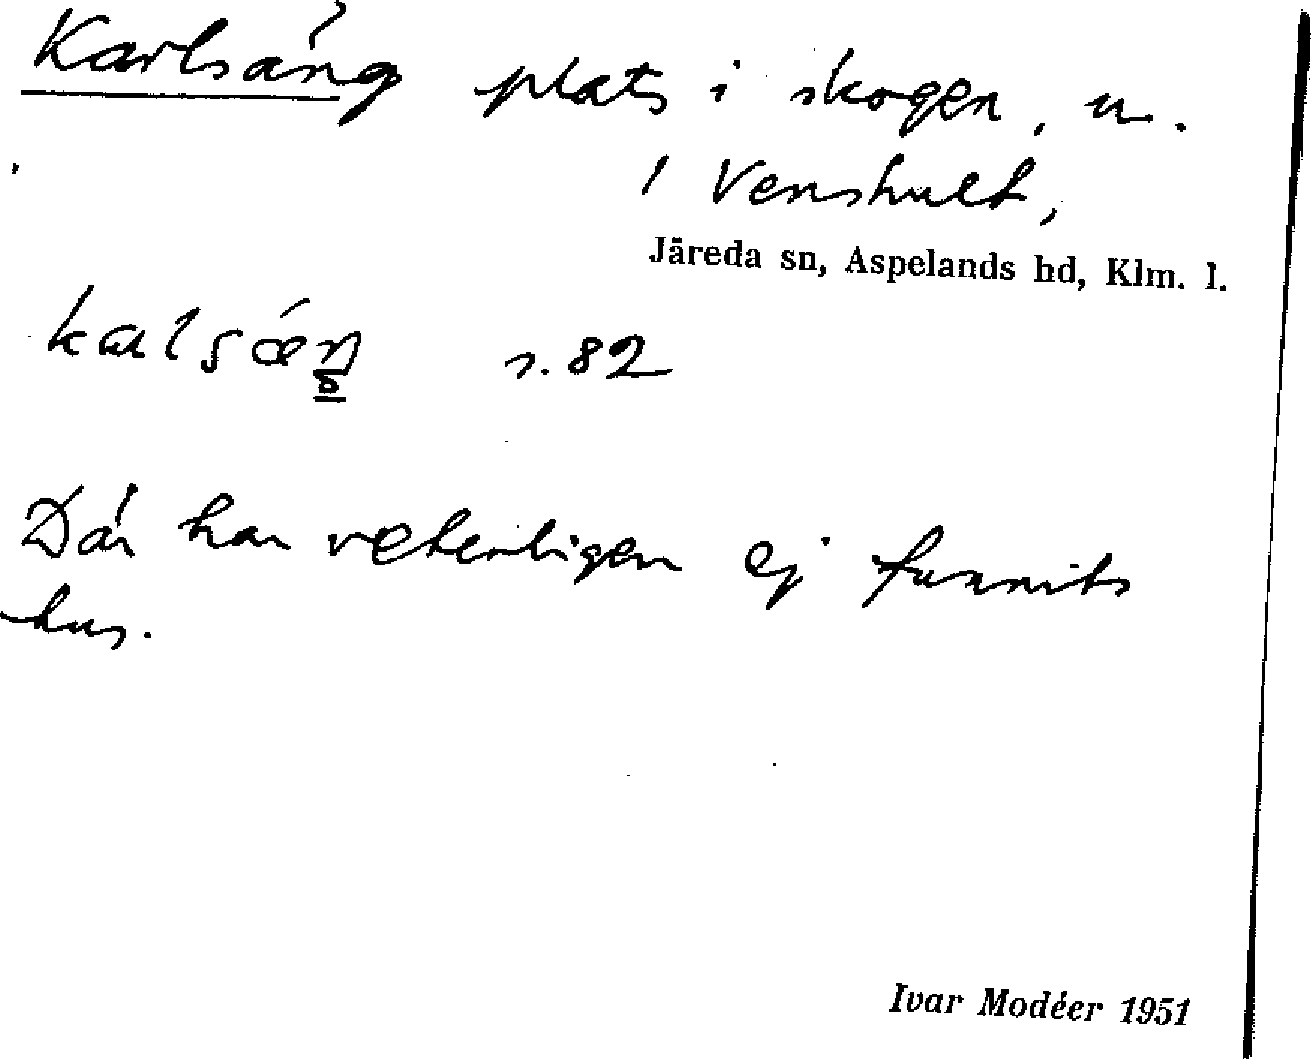 Karlsäng plats i skogen, n.
1 Venshult,
Järeda sn, Aspelands hd, Klm. l.
s. 82
Där har veterligen ej funnits
hus.
Ivar Modéer 1951